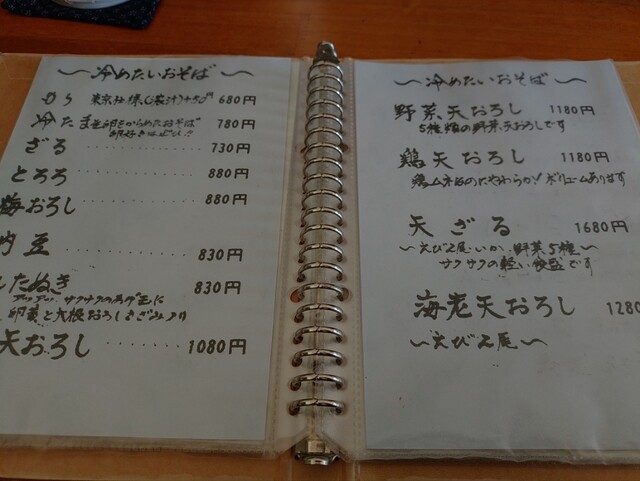 〜冷めたいおそば〜
もり 680円
冷たま 780円
ざる ............ 730円
とろろ ............ 880円
梅おろし ............ 880円
納豆 830円
たぬき 830円
卵黄と大根おろし
天おろし ........ 1080円
〜冷めたいおそば〜
野菜天おろし 1180円
5種類の野菜天おろしです
鶏天おろし 1180円
鶏ムネ肉のやわらか! ボリュームあります
天ざる 1680円
〜えび2尾・いか、野菜5種〜
サクサクの軽い食感です
海老天おろし 1280
〜えび2尾〜